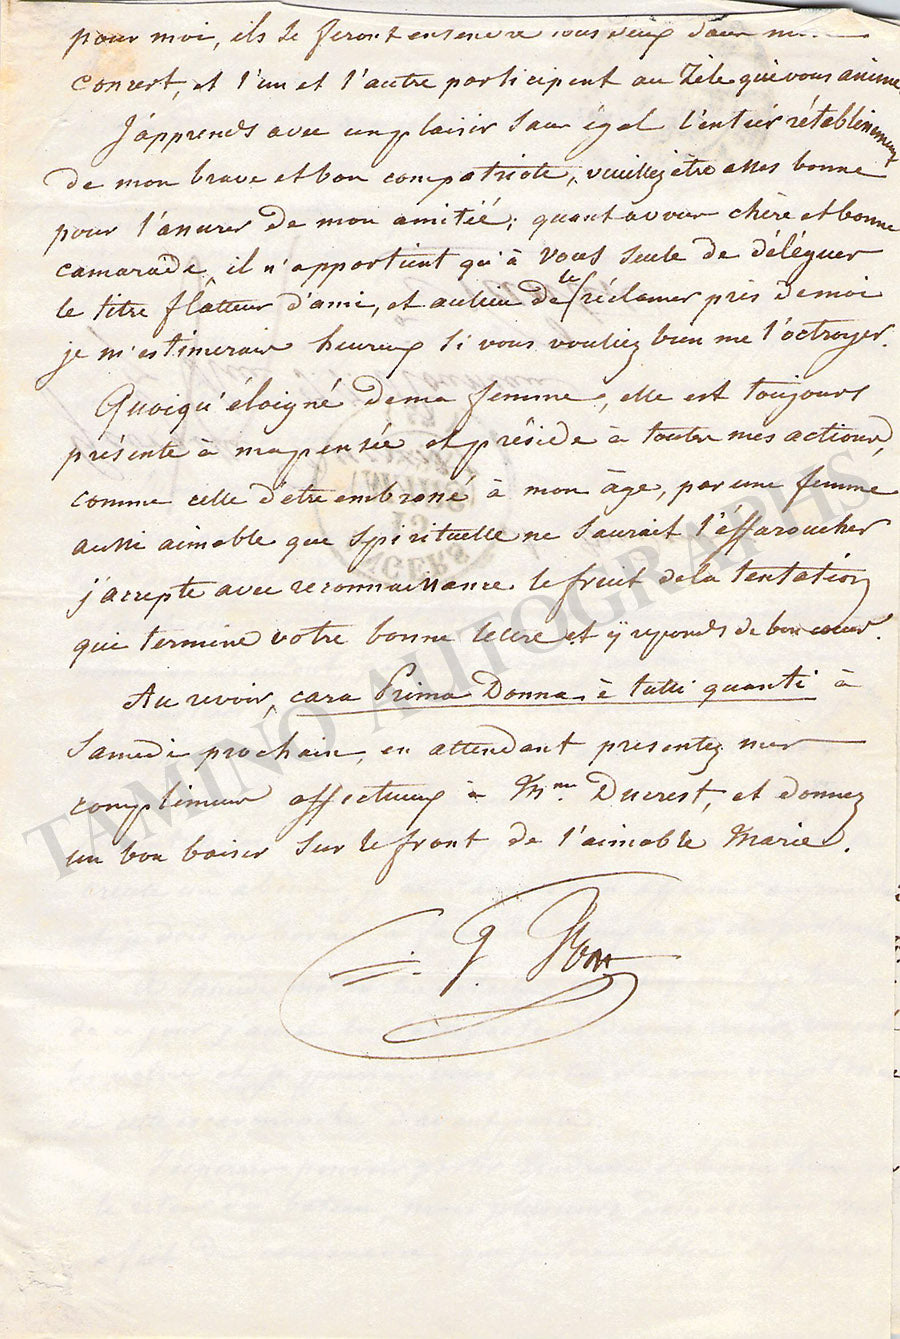 pour moi, ils se feront entendre tous deux dans
concert, et l'un et l'autre participent au Zèle qui vous anime
J'apprends avec un plaisir sans égal l'entier rétablissement
de mon brave et bon compatriote, veuillez être assez bonne
pour l'assurer de mon amitié; quant a vous chère et bonne
camarade, il n'appartient qu'à vous seule de déléguer
le titre flatteur d'ami, et au lieu de le réclamer près de moi
je m'estimerais heureux si vous vouliez bien me l'octroyer.
Quoiqu'éloigné de ma femme, elle est toujours
présente à ma pensée et préside à toutes mes actions,
comme celle d'être embrassé à mon âge, par une femme
aussi aimable que spirituelle ne saurait l'éffaroucher
j'accepte avec reconnaissance le fruit de la tentation
qui termine votre bonne lettre et y reponds de bon coeur.
Au revoir, cara Prima Donna è tutti quanti à
Samedi prochain, en attendant presentez mes
complimens affectueux a Mme Ducrest, et donnez
un bon baiser sur le front de l'aimable Marie.
TAMINO AUTOGRAPHS
ANGERS